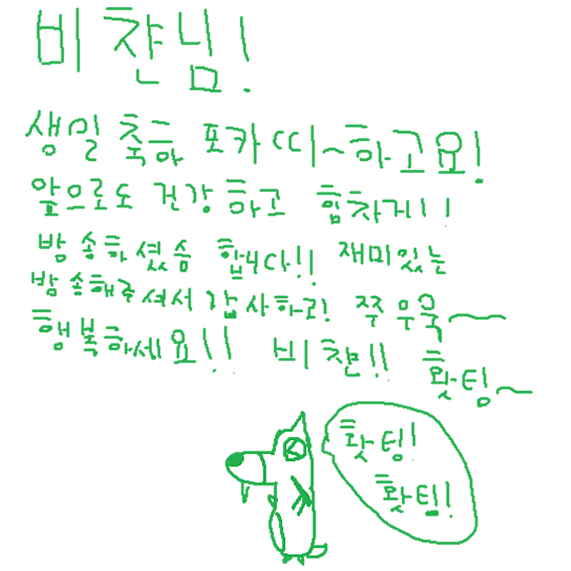 비챤님!
생일 축하 포카띠~하고요!
앞으로도 건강 하고 힘차게!!
밤송하셨슴 합니다!! 재미있는
밤송해주셔서 감사하고! 쭈우욱~
행복하세요!! 비챤!! 홧팅~
홧팅!
홧팅!